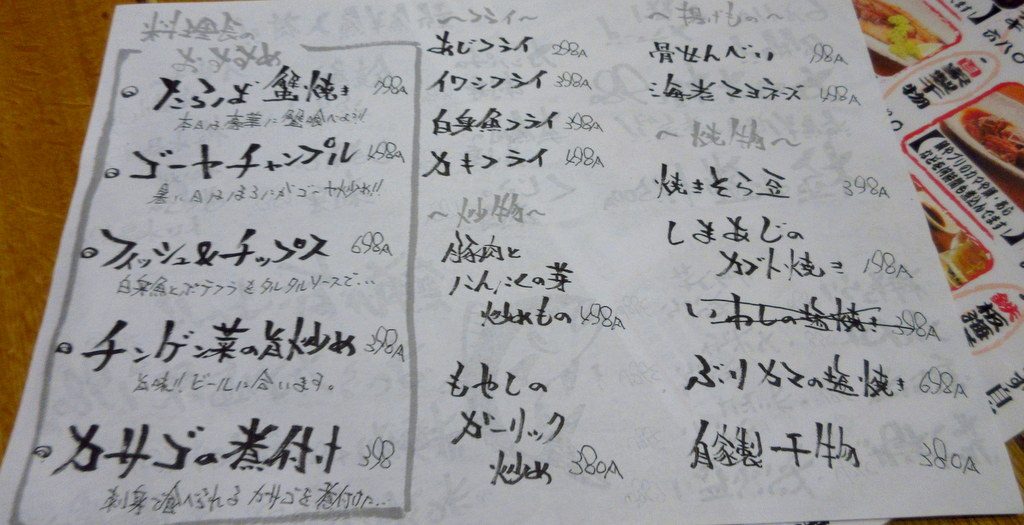 料理長の
おすすめ
・たらば蟹焼き 798A
本日は豪華に蟹食べよう!!
・ゴーヤチャンプル 498A
暑い日はほろにがゴーヤ炒め!!
・フィッシュ&チップス 698A
白身魚とポテフラをタルタルソースで…
・チンゲン菜の旨炒め 398A
旨味!!ビールに合います。
・カサゴの煮付け 398
刺身で食べられるカサゴを煮付けに…
〜フライ〜
あじフライ 298A
イワシフライ 398A
白身魚フライ 398A
カキフライ 498A
〜炒物〜
豚肉と
にんにくの菜
炒めもの 498A
もやしの
ガーリック
炒め 380A
〜揚げもの〜
骨せんべい 198A
海老マヨネーズ 498A
〜焼物〜
焼きそら豆 398A
しまあじの
カブト焼き 198A
いわしの塩焼き 398A
ぶりカマの塩焼き 698A
自家製干物 380A